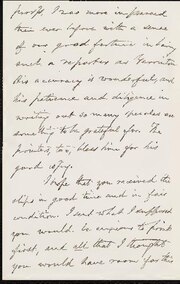 proofs. I was more impressed
than ever before with a sense
of our good fortune in having
such a reporter as
His accuracy is wonderful, and
his patience and diligence in
writing out so many speeches are
something to be grateful for. The
printer, too, bless him for his
good
I hope that you received the
slips in good time and in fair
condition. I sent what I supposed
you would be anxious to print
first, and all that I thought
you would have room for this